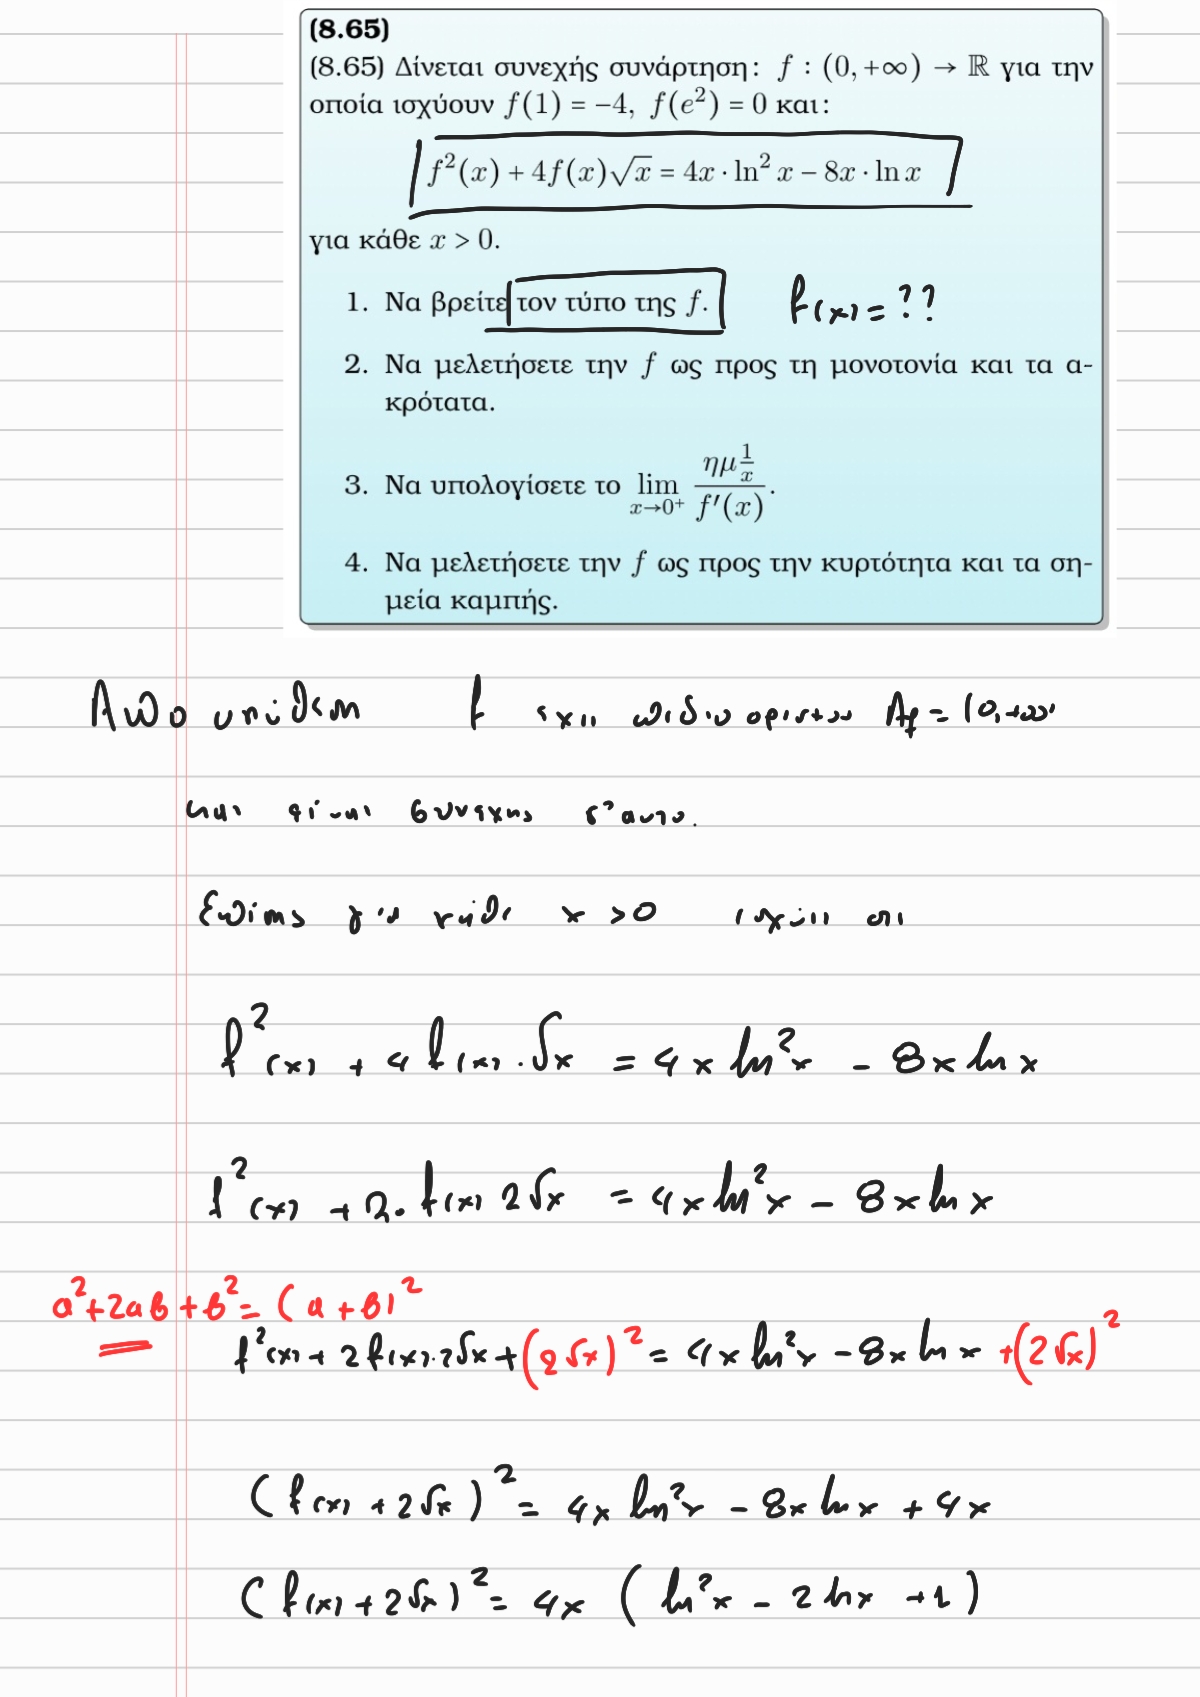 (8.65)
(8.65) Δίνεται συνεχής συνάρτηση: f : (0, +∞) → ℝ για την
οποία ισχύουν f(1) = −4, f(e²) = 0 και:
f²(x) + 4f(x)√x = 4x · ln² x − 8x · ln x
για κάθε x > 0.
1. Να βρείτε τον τύπο της f. f(x) = ??
2. Να μελετήσετε την f ως προς τη μονοτονία και τα α-
κρότατα.
3. Να υπολογίσετε το lim x→0⁺ ημ 1/x / f′(x).
4. Να μελετήσετε την f ως προς την κυρτότητα και τα ση-
μεία καμπής.
Απο υπόθεση f έχει πεδίο ορισμου Af = (0,+∞)
και είναι συνεχης σ' αυτο.
Επίσης για κάθε x > 0 ισχύει οτι
f²(x) + 4 f(x) · √x = 4x ln²x − 8x ln x
f²(x) + 2 · f(x) 2√x = 4x ln²x − 8x ln x
a² + 2aβ + β² = (a + β)²
f²(x) + 2 f(x) · 2√x + (2√x)² = 4x ln²x − 8x ln x + (2√x)²
(f(x) + 2√x)² = 4x ln²x − 8x ln x + 4x
(f(x) + 2√x)² = 4x (ln²x − 2 lnx + 1)